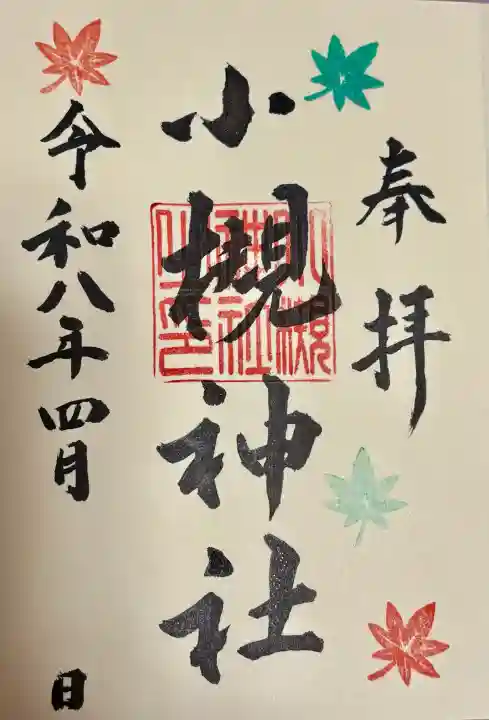 奉拝
小槻神社
小槻神社之印
令和八年四月 日